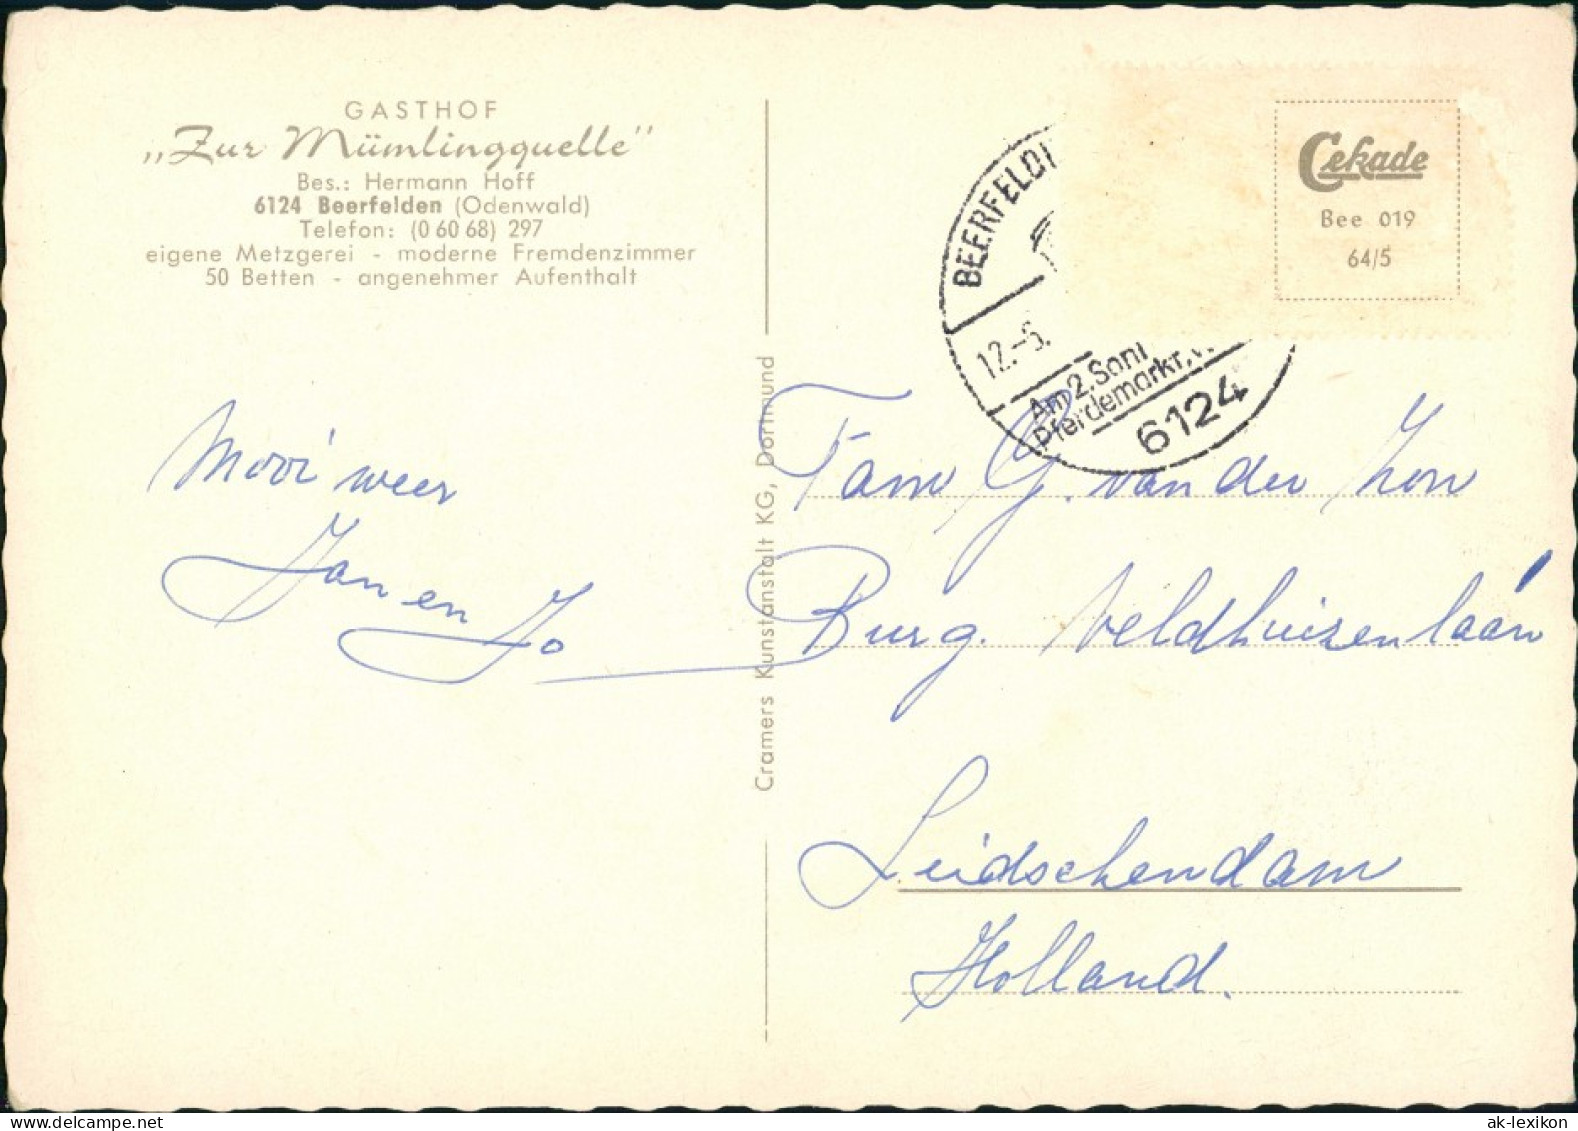 GASTHOF
„Zur Mümlingquelle"
Bes.: Hermann Hoff
6124 Beerfelden (Odenwald)
Telefon: (0 60 68) 297
eigene Metzgerei - moderne Fremdenzimmer
50 Betten - angenehmer Aufenthalt
Mooi weer
Jan en Jo
Cramers Kunstanstalt KG, Dortmund
BEERFELD
12.-6.
Am 2. Sonn
Pferdemarkt
6124
Cekade
Bee 019
64/5
Fam G. van der Zon
Burg. Veldhuizenlaan
Leidschendam
Holland.
ak-lexikon